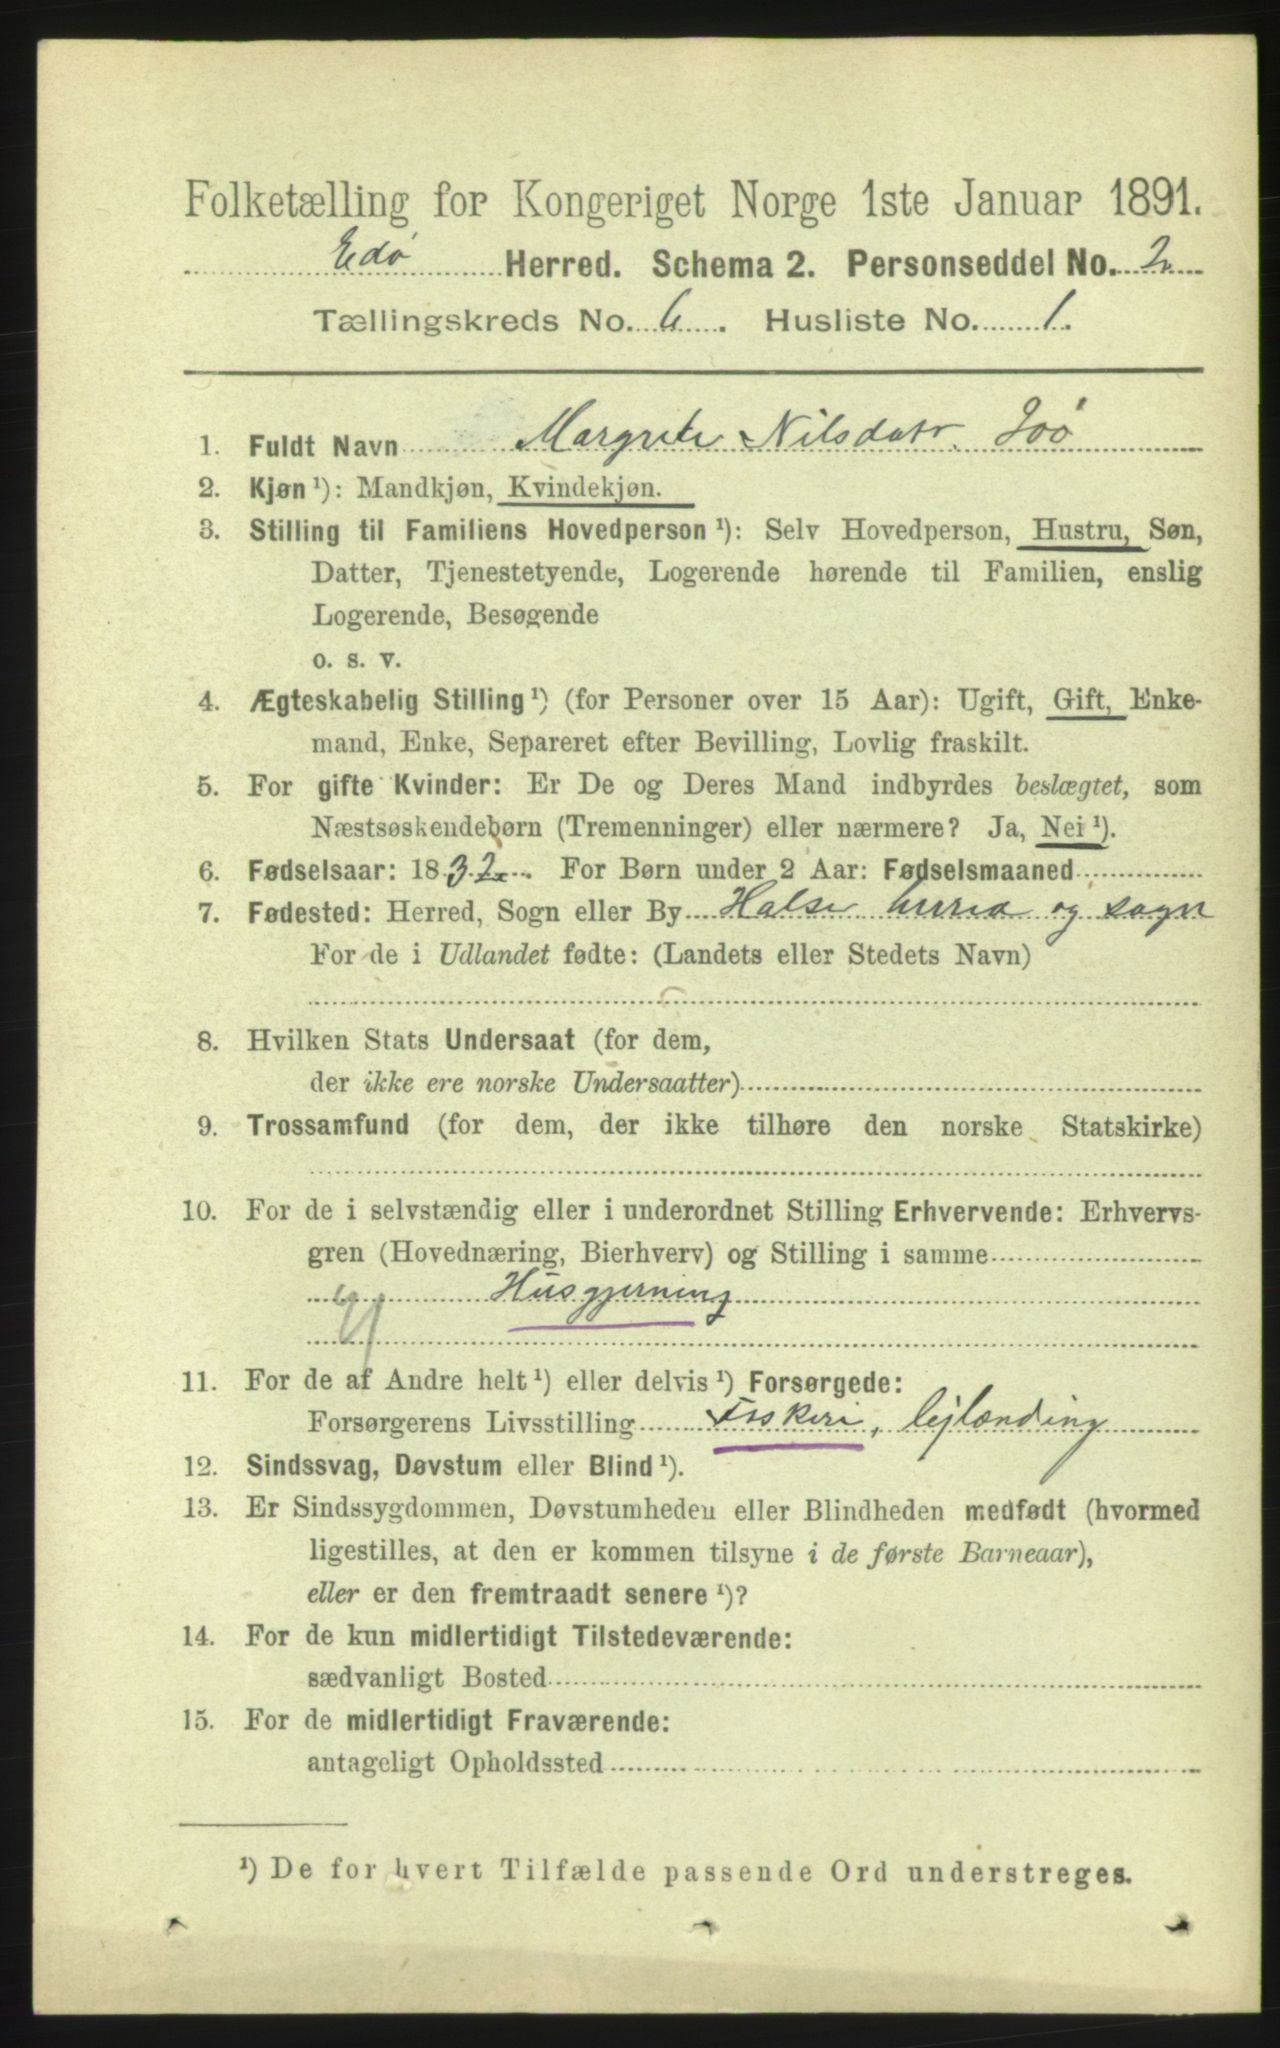 Folketælling for Kongeriget Norge 1ste Januar 1891.
Edø Herred. Schema 2. Personseddel No. 2
Tællingskreds No. 6. Husliste No. 1.
1. Fuldt Navn Margrete Nilsdatr.
2. Kjøn ¹): Mandkjøn, Kvindekjøn.
3. Stilling til Familiens Hovedperson ¹): Selv Hovedperson, Hustru, Søn,
Datter, Tjenestetyende, Logerende hørende til Familien, enslig
Logerende, Besøgende
o. s. v.
4. Ægteskabelig Stilling ¹) (for Personer over 15 Aar): Ugift, Gift, Enke-
mand, Enke, Separeret efter Bevilling, Lovlig fraskilt.
5. For gifte Kvinder: Er De og Deres Mand indbyrdes beslægtet, som
Næstsøskendebørn (Tremenninger) eller nærmere? Ja, Nei ¹).
6. Fødselsaar: 1832. For Børn under 2 Aar: Fødselsmaaned
7. Fødested: Herred, Sogn eller By Halse herred og sogn
For de i Udlandet fødte: (Landets eller Stedets Navn)
8. Hvilken Stats Undersaat (for dem,
der ikke ere norske Undersaatter)
9. Trossamfund (for dem, der ikke tilhøre den norske Statskirke)
10. For de i selvstændig eller i underordnet Stilling Erhvervende: Erhvervs-
gren (Hovednæring, Bierhverv) og Stilling i samme
Husgjerning
11. For de af Andre helt ¹) eller delvis ¹) Forsørgede:
Forsørgerens Livsstilling Fiskeri, lejlænding
12. Sindssvag, Døvstum eller Blind ¹).
13. Er Sindssygdommen, Døvstumheden eller Blindheden medfødt (hvormed
ligestilles, at den er kommen tilsyne i de første Barneaar),
eller er den fremtraadt senere ¹)?
14. For de kun midlertidigt Tilstedeværende:
sædvanligt Bosted
15. For de midlertidigt Fraværende:
antageligt Opholdssted
¹) De for hvert Tilfælde passende Ord understreges.